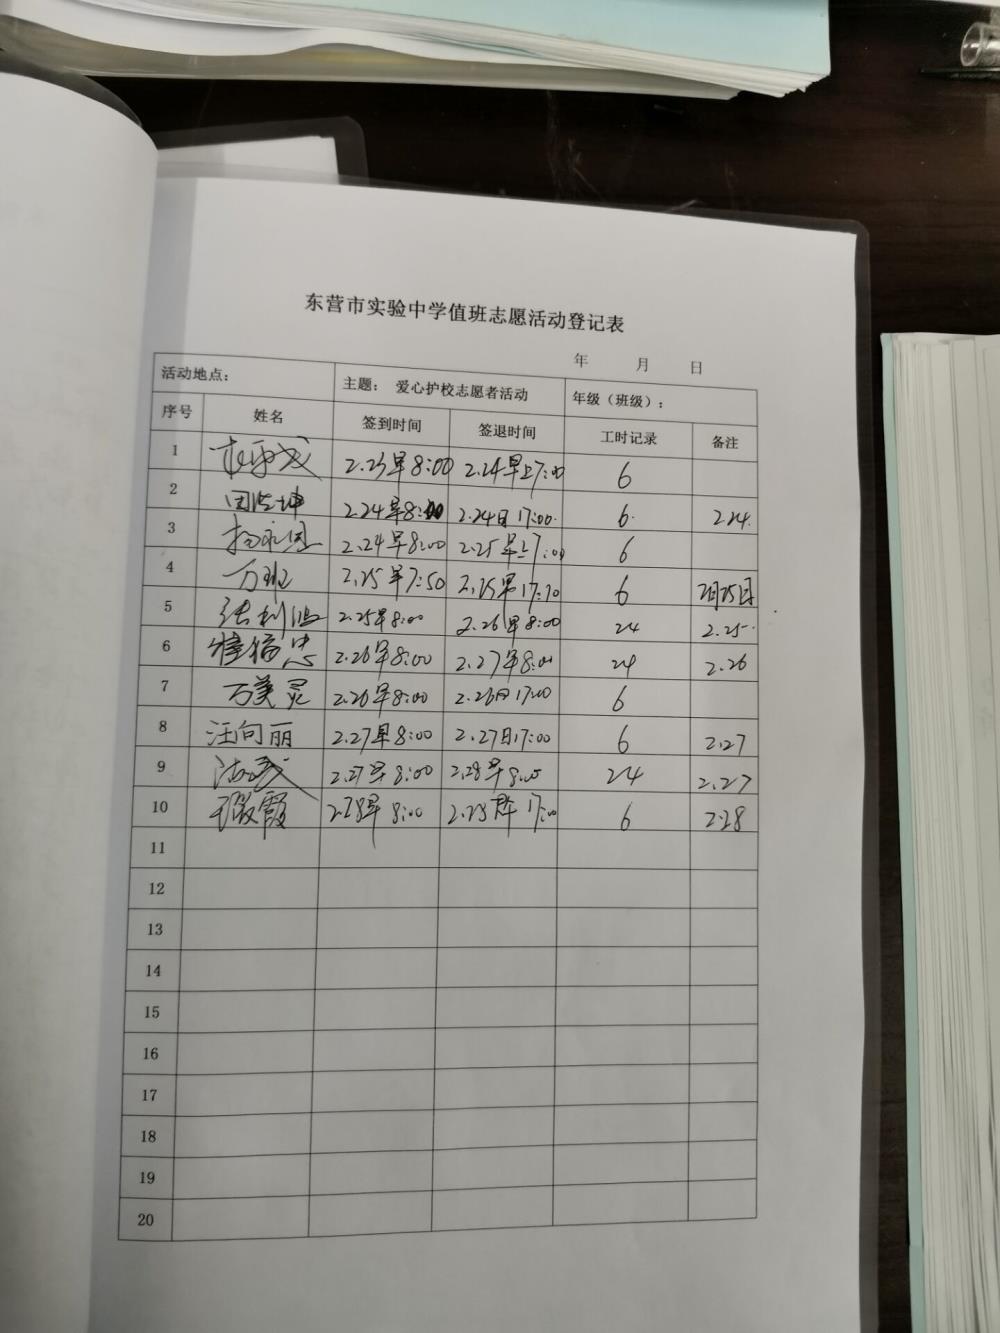 东营市实验中学值班志愿活动登记表
年 月 日
活动地点： 主题： 爱心护校志愿者活动 年级（班级）：
序号 姓名 签到时间 签退时间 工时记录 备注
1 2.23早8:00 2.24早上7:00 6
2 2.24早8:00 2.24日17:00 6 2.24
3 2.24早8:00 2.25早上7:00 6
4 万班 2.25早7:50 6 2月25日
5 张利鸿 2.25早8:00 2.26早8:00 24 2.25
6 2.26早8:00 2.27早8:00 24 2.26
7 万美灵 2.26早8:00 2.26日17:00 6
8 汪向丽 2.27早8:00 2.27日17:00 6 2.27
9 2.27早8:00 2.28早8:00 24 2.27
10 2.28早8:00 6 2.28
11
12
13
14
15
16
17
18
19
20